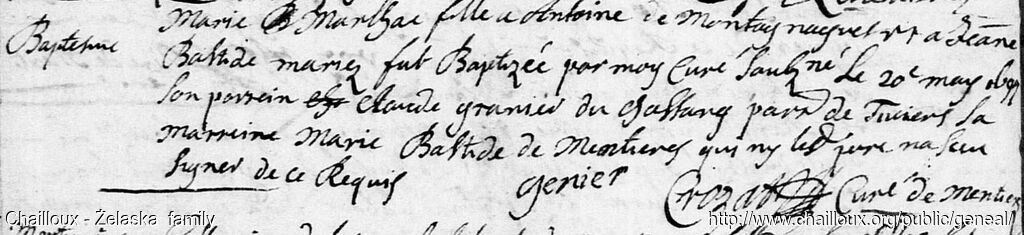 Marie Marlhac fille a Antoine de Montagnaguet et a Jeanne
Baptesme
Bastide mariez fut Baptizée par moy Curé soubzné le 20e may
son parrein Claude granier du parr de Tiviers sa
marreine Marie Bastide de Mentieres qui ny led jure na sceu
signer de ce Requis
genier Crozat Curé de Mentier
Chailloux - Żelaska family
http://www.chailloux.org/public/geneal/